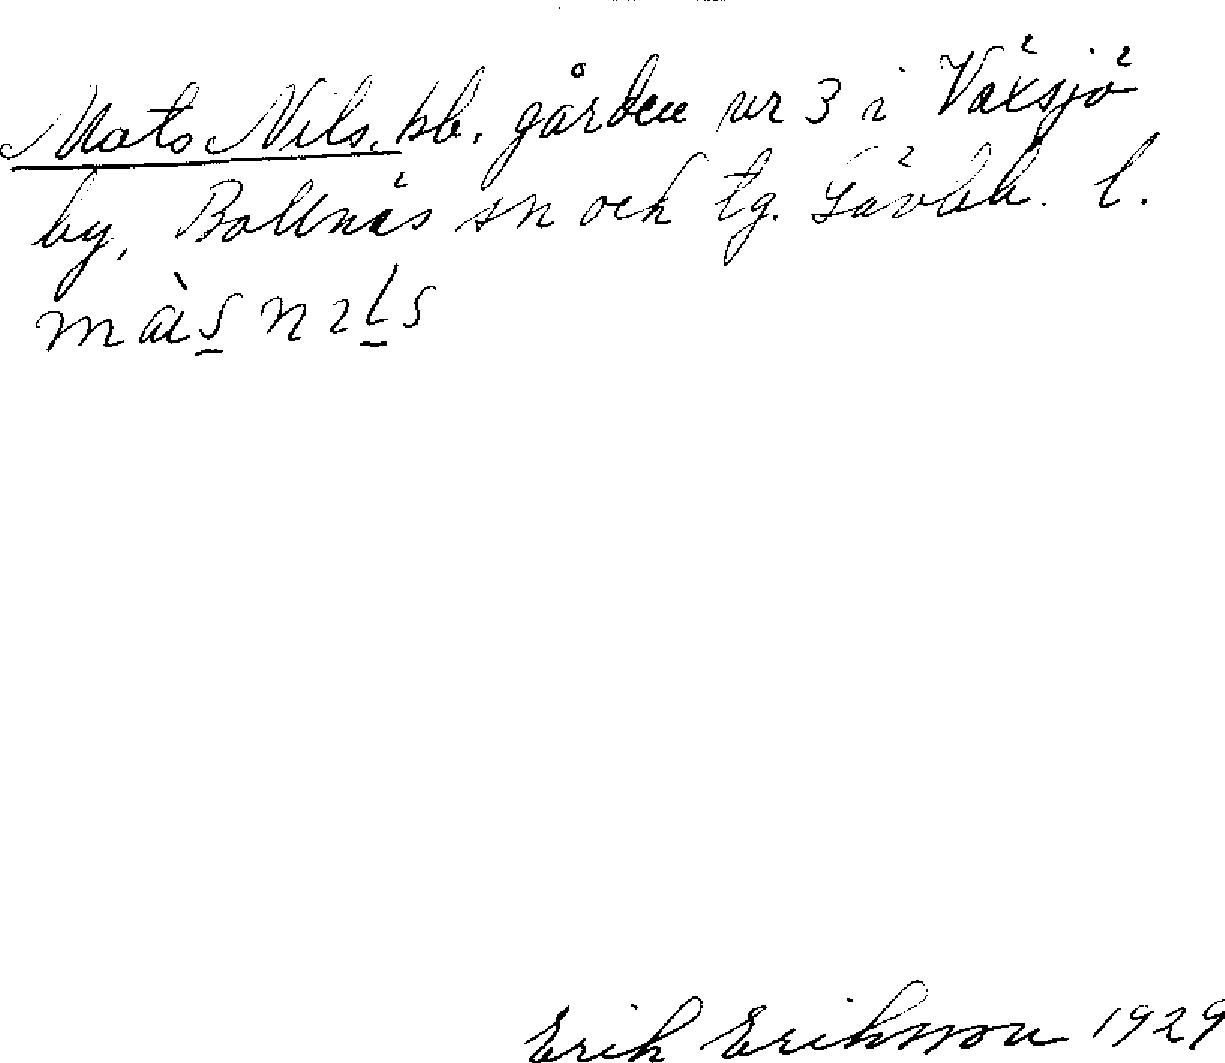 Mats Nils, bb. gården nr 3 i Växsjö
by, Bollnäs sn och tg. Gävleb. l.
Erik Eriksson 1929